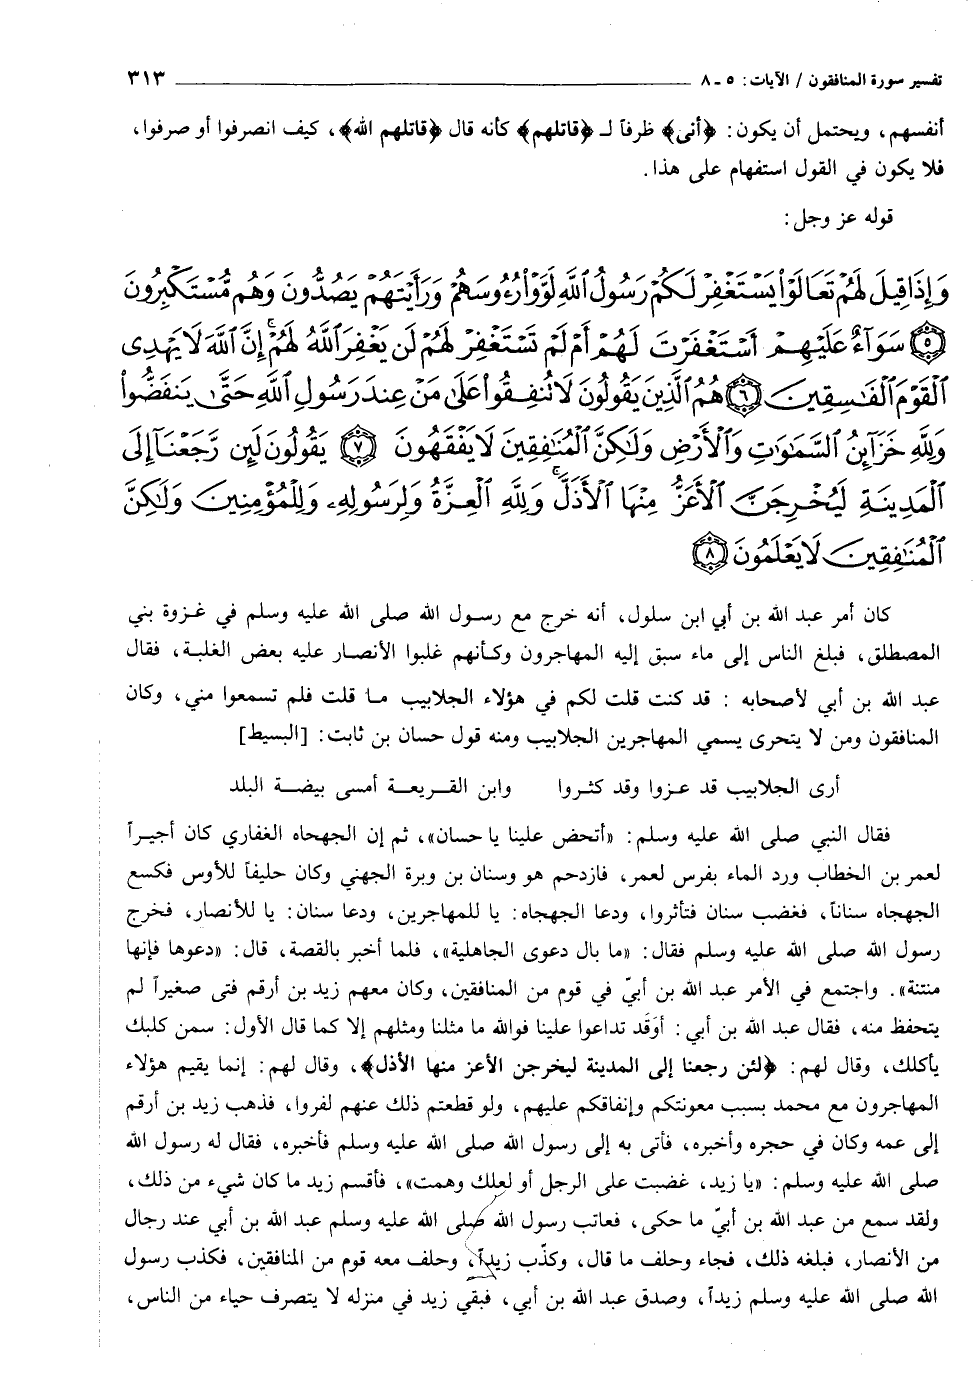 تفسير سورة المنافقون / الآيات: ٥ ـ ٨ ٣١٣
أنفسهم، ويحتمل أن يكون: ﴿أنى﴾ ظرفاً لـ ﴿قاتلهم﴾ كأنه قال ﴿قاتلهم الله﴾، كيف انصرفوا أو صرفوا،
فلا يكون في القول استفهام على هذا.
قوله عز وجل:
وَإِذَا قِيلَ لَهُمْ تَعَالَوْا۟ يَسْتَغْفِرْ لَكُمْ رَسُولُ ٱللَّهِ لَوَّوْا۟ رُءُوسَهُمْ وَرَأَيْتَهُمْ يَصُدُّونَ وَهُم مُّسْتَكْبِرُونَ
﴿٥﴾ سَوَآءٌ عَلَيْهِمْ أَسْتَغْفَرْتَ لَهُمْ أَمْ لَمْ تَسْتَغْفِرْ لَهُمْ لَن يَغْفِرَ ٱللَّهُ لَهُمْ ۚ إِنَّ ٱللَّهَ لَا يَهْدِى
ٱلْقَوْمَ ٱلْفَـٰسِقِينَ ﴿٦﴾ هُمُ ٱلَّذِينَ يَقُولُونَ لَا تُنفِقُوا۟ عَلَىٰ مَنْ عِندَ رَسُولِ ٱللَّهِ حَتَّىٰ يَنفَضُّوا۟
وَلِلَّهِ خَزَآئِنُ ٱلسَّمَـٰوَٰتِ وَٱلْأَرْضِ وَلَـٰكِنَّ ٱلْمُنَـٰفِقِينَ لَا يَفْقَهُونَ ﴿٧﴾ يَقُولُونَ لَئِن رَّجَعْنَآ إِلَى
ٱلْمَدِينَةِ لَيُخْرِجَنَّ ٱلْأَعَزُّ مِنْهَا ٱلْأَذَلَّ ۚ وَلِلَّهِ ٱلْعِزَّةُ وَلِرَسُولِهِۦ وَلِلْمُؤْمِنِينَ وَلَـٰكِنَّ
ٱلْمُنَـٰفِقِينَ لَا يَعْلَمُونَ ﴿٨﴾
كان أمر عبد الله بن أبي ابن سلول، أنه خرج مع رسول الله صلى الله عليه وسلم في غزوة بني
المصطلق، فبلغ الناس إلى ماء سبق إليه المهاجرون وكأنهم غلبوا الأنصار عليه بعض الغلبة، فقال
عبد الله بن أبي لأصحابه : قد كنت قلت لكم في هؤلاء الجلابيب ما قلت فلم تسمعوا مني، وكان
المنافقون ومن لا يتحرى يسمي المهاجرين الجلابيب ومنه قول حسان بن ثابت: [البسيط]
أرى الجلابيب قد عزوا وقد كثروا وابن القريعة أمسى بيضة البلد
فقال النبي صلى الله عليه وسلم: «أتحض علينا يا حسان»، ثم إن الجهجاه الغفاري كان أجيراً
لعمر بن الخطاب ورد الماء بفرس لعمر، فازدحم هو وسنان بن وبرة الجهني وكان حليفاً للأوس فكسع
الجهجاه سناناً، فغضب سنان فتأثروا، ودعا الجهجاه: يا للمهاجرين، ودعا سنان: يا للأنصار، فخرج
رسول الله صلى الله عليه وسلم فقال: «ما بال دعوى الجاهلية»، فلما أخبر بالقصة، قال: «دعوها فإنها
منتنة». واجتمع في الأمر عبد الله بن أبيّ في قوم من المنافقين، وكان معهم زيد بن أرقم فتى صغيراً لم
يتحفظ منه، فقال عبد الله بن أبي: أوَقَد تداعوا علينا فوالله ما مثلنا ومثلهم إلا كما قال الأول: سمن كلبك
يأكلك، وقال لهم: ﴿لئن رجعنا إلى المدينة ليخرجن الأعز منها الأذل﴾، وقال لهم: إنما يقيم هؤلاء
المهاجرون مع محمد بسبب معونتكم وإنفاقكم عليهم، ولو قطعتم ذلك عنهم لفروا، فذهب زيد بن أرقم
إلى عمه وكان في حجره وأخبره، فأتى به إلى رسول الله صلى الله عليه وسلم فأخبره، فقال له رسول الله
صلى الله عليه وسلم: «يا زيد، غضبت على الرجل أو لعلك وهمت»، فأقسم زيد ما كان شيء من ذلك،
ولقد سمع من عبد الله بن أبيّ ما حكى، فعاتب رسول الله صلى الله عليه وسلم عبد الله بن أبي عند رجال
من الأنصار، فبلغه ذلك، فجاء وحلف ما قال، وكذّب زيداً، وحلف معه قوم من المنافقين، فكذب رسول
الله صلى الله عليه وسلم زيداً، وصدق عبد الله بن أبي، فبقي زيد في منزله لا يتصرف حياء من الناس،